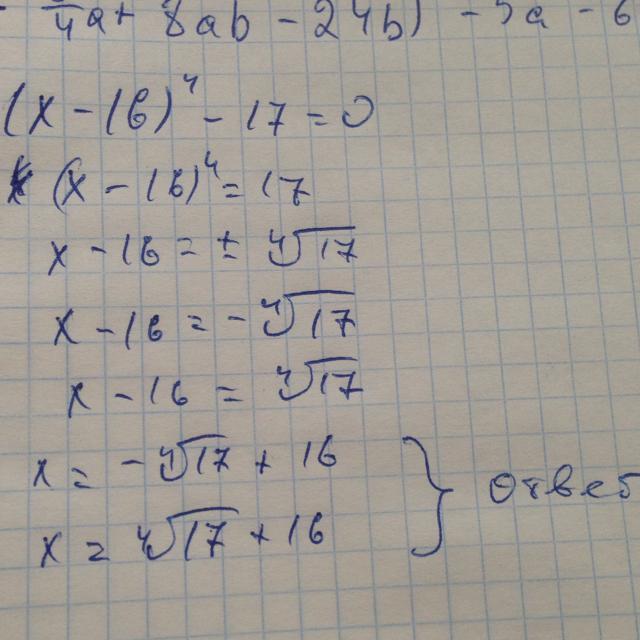 /4a + 8ab - 24b) - 5a - 6
(x - 16)⁴ - 17 = 0
(x - 16)⁴ = 17
x - 16 = ± ⁴√17
x - 16 = - ⁴√17
x - 16 = ⁴√17
x = - ⁴√17 + 16
x = ⁴√17 + 16
} ответ